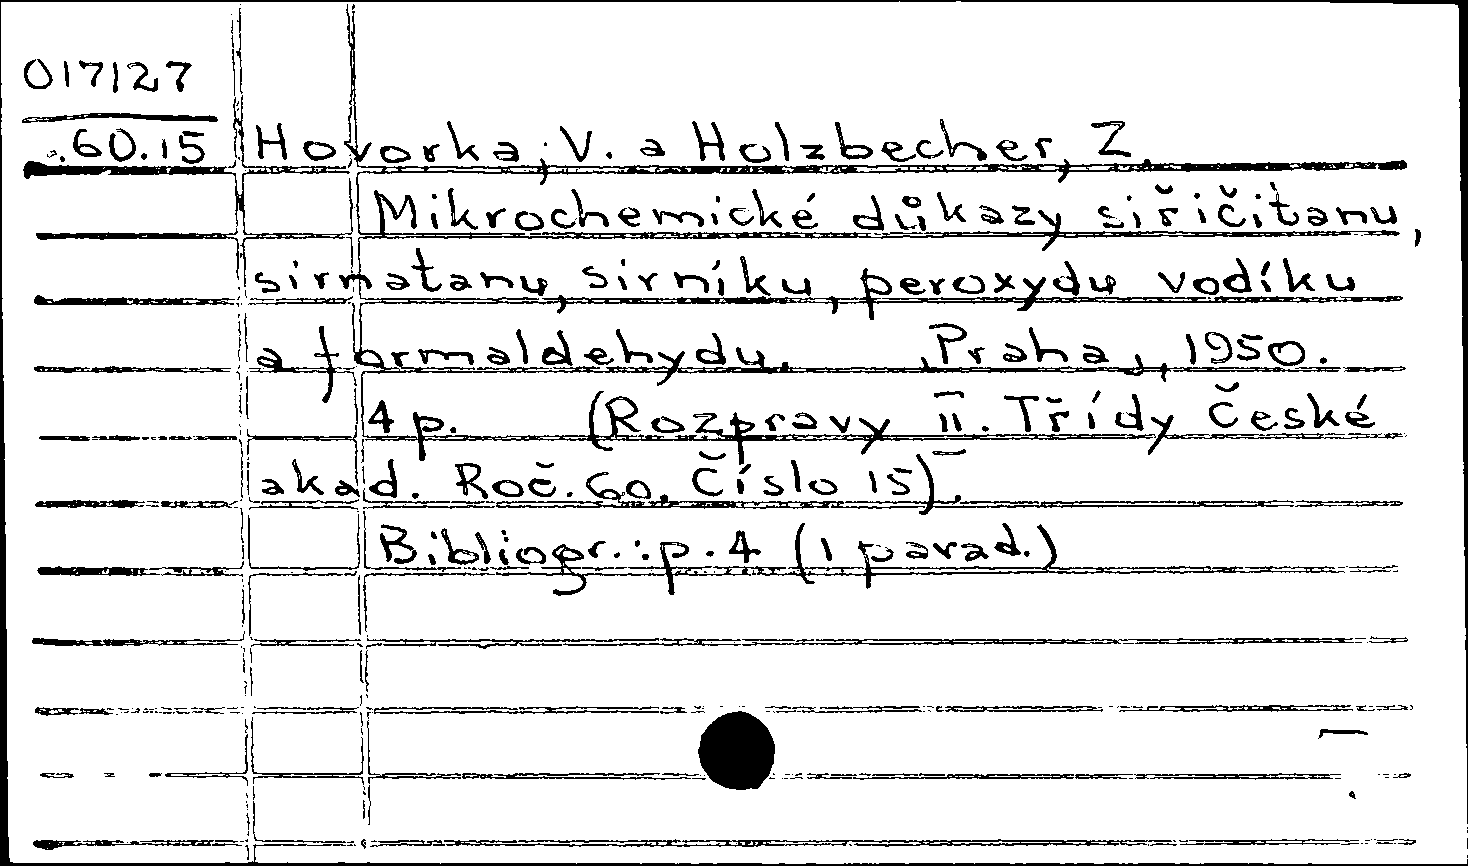 017127
.60.15 Hovorka, V. a Holzbecher, Z.
Mikrochemické důkazy siřičitanu,
sirnatanu, sirníku, peroxydu vodíku
a formaldehydu. Praha, 1950.
4 p. (Rozpravy II. Třídy České
akad. Roč. 60. Číslo 15).
Bibliogr.: p. 4 (1 parad.)